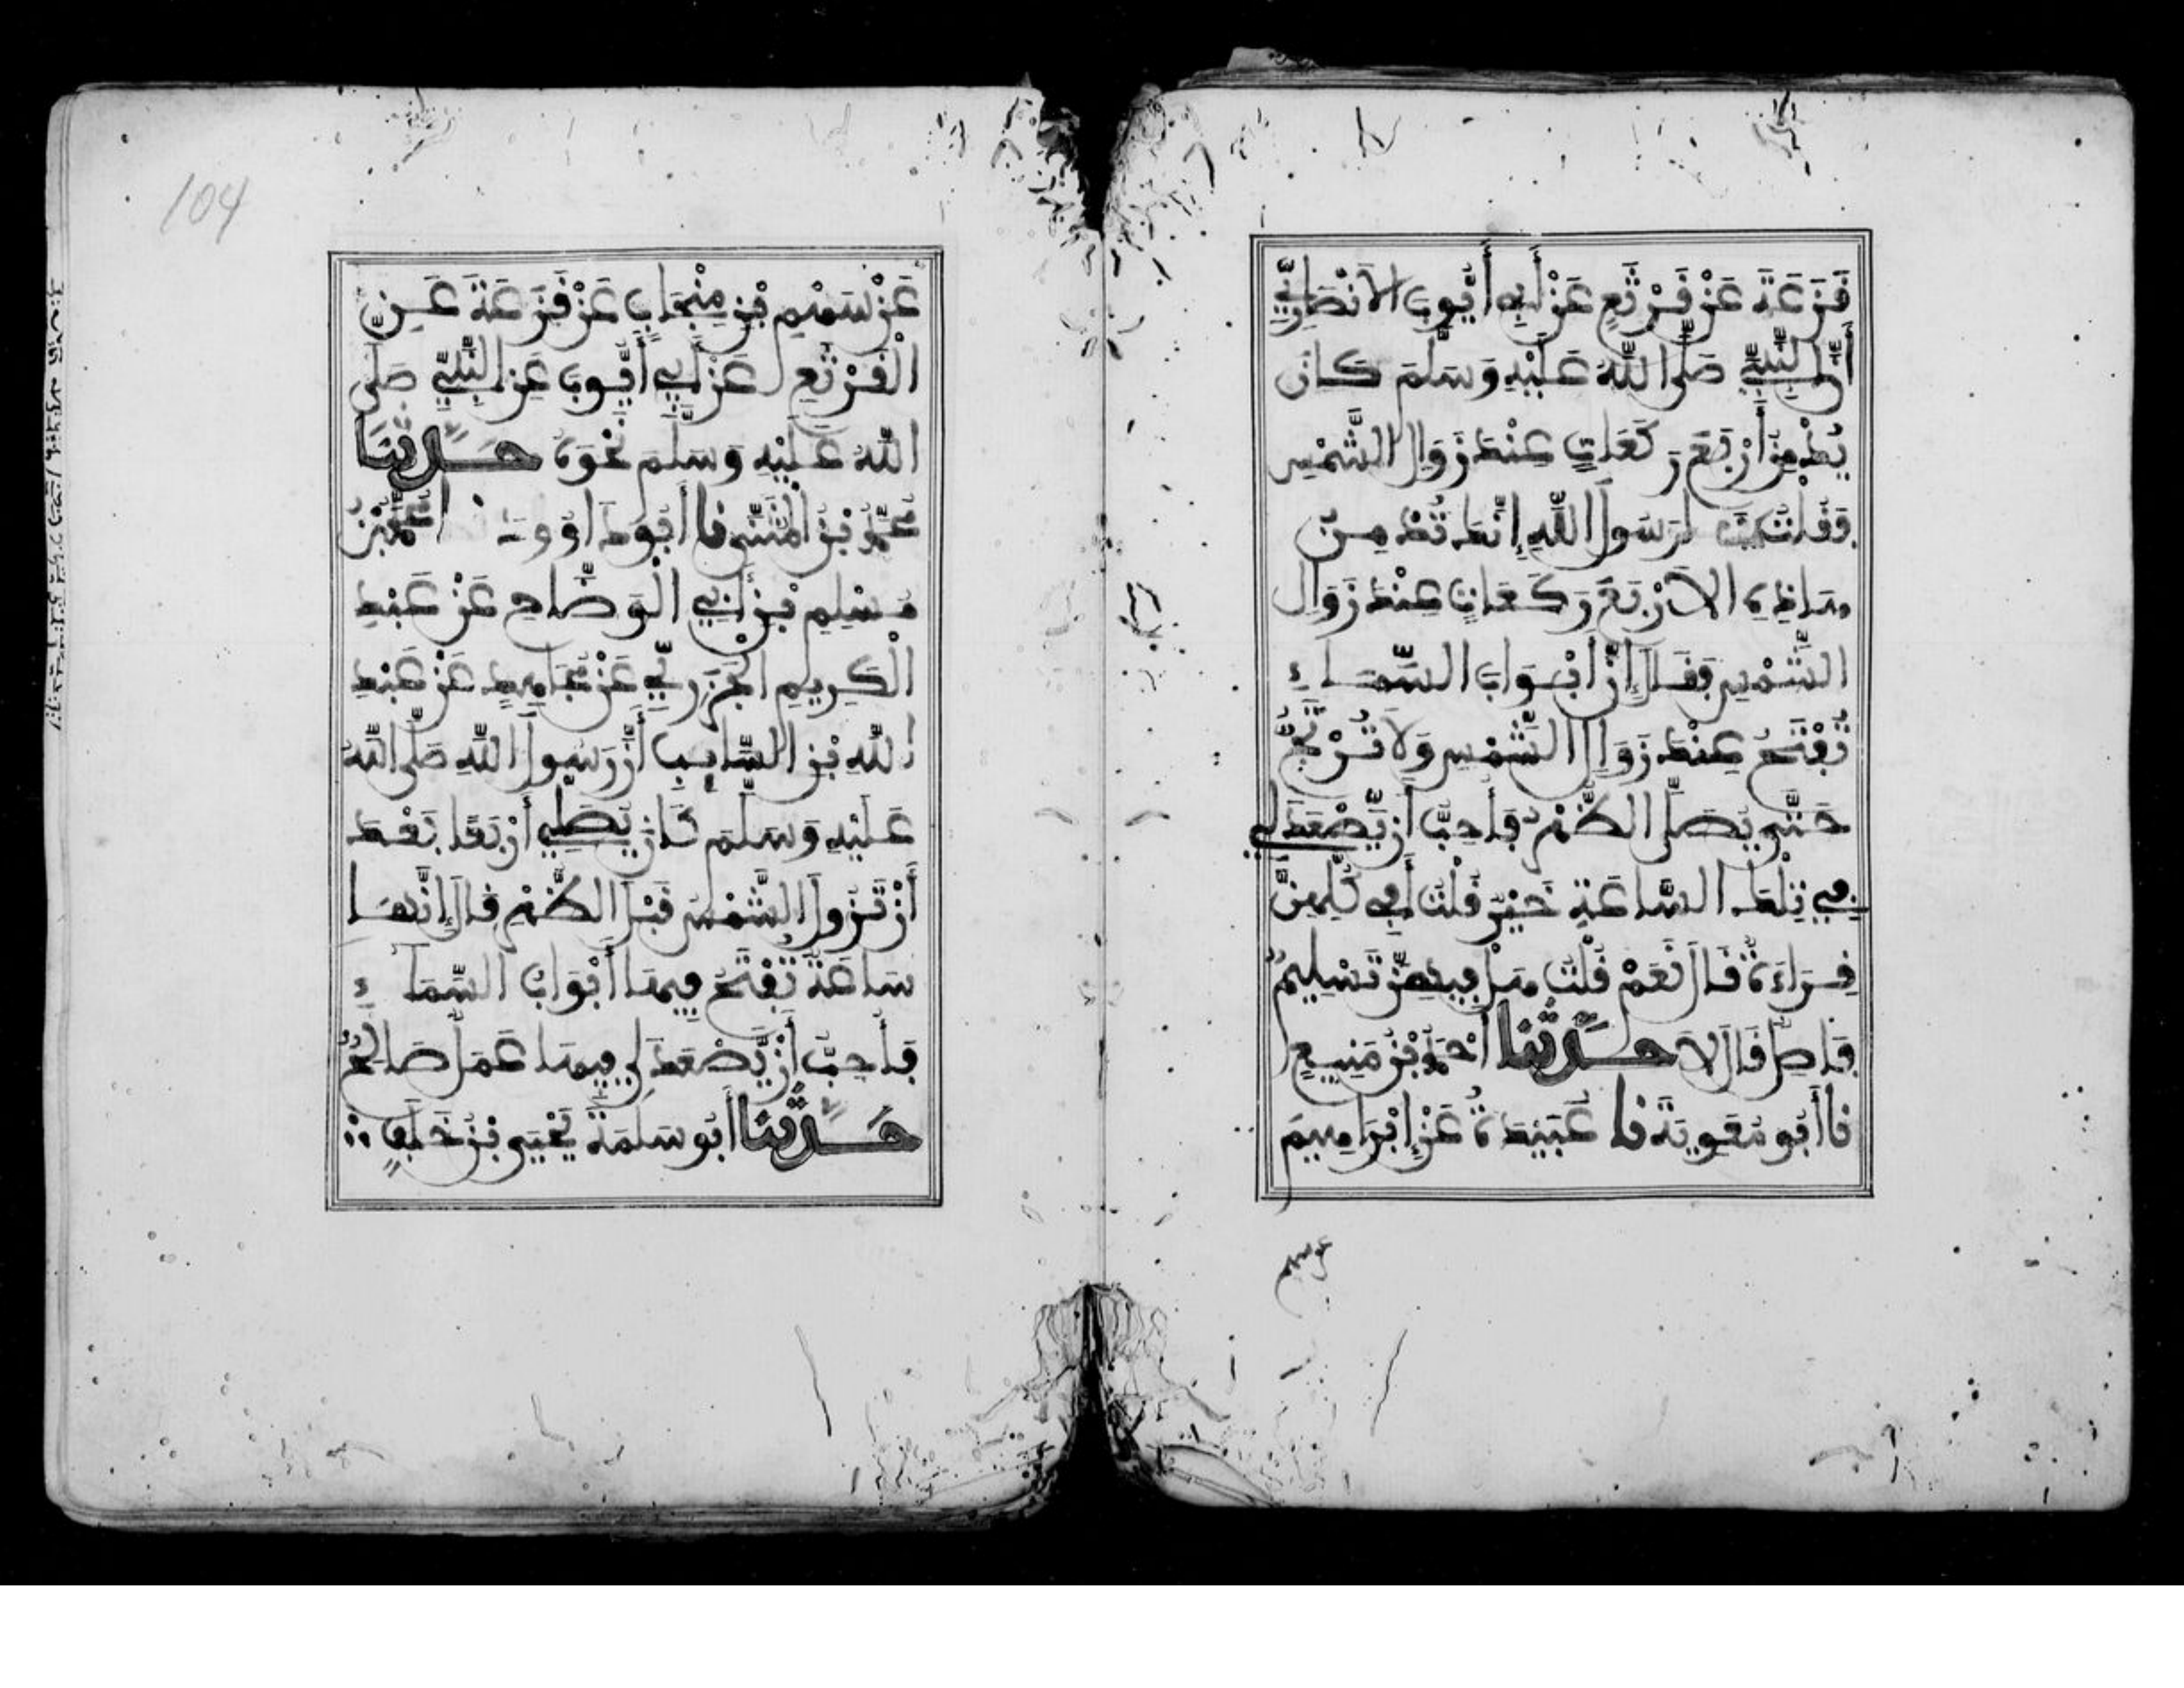 قَزَعَةَ عَنْ قَرْثَعٍ عَنْ أَبِي أَيُّوبَ الأَنْصَارِيِّ
أَنَّ النَّبِيَّ صَلَّى اللَّهُ عَلَيْهِ وَسَلَّمَ كَانَ
يُدْمِنُ أَرْبَعَ رَكَعَاتٍ عِنْدَ زَوَالِ الشَّمْسِ
فَقُلْتُ يَرَسُولَ اللَّهِ إِنَّكَ تُدْمِنُ
هَاذِهِ الأَرْبَعَ رَكَعَاتٍ عِنْدَ زَوَالِ
الشَّمْسِ فَقَالَ إِنَّ أَبْوَابَ السَّمَاءِ
تُفْتَحُ عِنْدَ زَوَالِ الشَّمْسِ وَلَا تُرْتَجُّ
حَتَّى يُصَلَّى الظُّهْرُ فَأُحِبُّ أَنْ يَّصْعَدَ لِي
فِي تِلْكَ السَّاعَةِ خَيْرٌ قُلْتُ أَفِي كُلِّهِنَّ
قِرَاءَةٌ قَالَ نَعَمْ قُلْتُ هَلْ فِيهِنَّ تَسْلِيمٌ
فَاصِلٌ قَالَ لَا حَدَّثَنَا أَحْمَدُ بْنُ مَنِيعٍ
نا أَبُو مُعَوِيَةَ نا عُبَيْدَةُ عَنْ إِبْرَاهِيمَ
عن سهم
104
عَنْ سَهْمِ بْنِ مِنْجَابٍ عَنْ قَزَعَةَ عَنِ
الْقَرْثَعِ عَنْ أَبِي أَيُّوبَ عَنِ النَّبِيِّ صَلَّى
اللَّهُ عَلَيْهِ وَسَلَّمَ نَحْوَهُ حَدَّثَنَا
مُحَمَّدُ بْنُ الْمُثَنَّى نا أَبُو دَاوُودَ نا مُحَمَّدُ بْنُ
مُسْلِمِ بْنِ أَبِي الْوَضَّاحِ عَنْ عَبْدِ
الْكَرِيمِ الْجَزَرِيِّ عَنْ مُجَاهِدٍ عَنْ عَبْدِ
اللَّهِ بْنِ السَّايِبِ أَنَّ رَسُولَ اللَّهِ صَلَّى اللَّهُ
عَلَيْهِ وَسَلَّمَ كَانَ يُصَلِّي أَرْبَعًا بَعْدَ
أَنْ تَزُولَ الشَّمْسُ قَبْلَ الظُّهْرِ قَالَ إِنَّهَا
سَاعَةٌ تُفْتَحُ فِيهَا أَبْوَابُ السَّمَاءِ
فَأُحِبُّ أَنْ يَّصْعَدَ لِي فِيهَا عَمَلٌ صَالِحٌ
حَدَّثَنَا أَبُو سَلَمَةَ يَحْيَى بْنُ خَلَفٍ